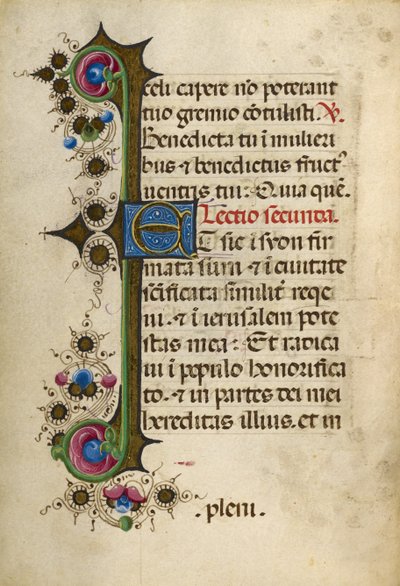 celi capere nõ poterant
tuo gremio cõtulisti. ℟.
Benedicta tu ĩ mulieri
bus ⁊ benedictus fruct⁹
uentris tui: Quia quẽ.
Lectio secunda.
ET sic ĩ syon fir
mata sum ⁊ ĩ ciuitate
scĩficata similit̃ reqe
ui. ⁊ ĩ ierusalem pote
stas mea: Et radica
ui ĩ populo honorifica
to. ⁊ in partes dei mei
hereditas illius. et in
.pleni.